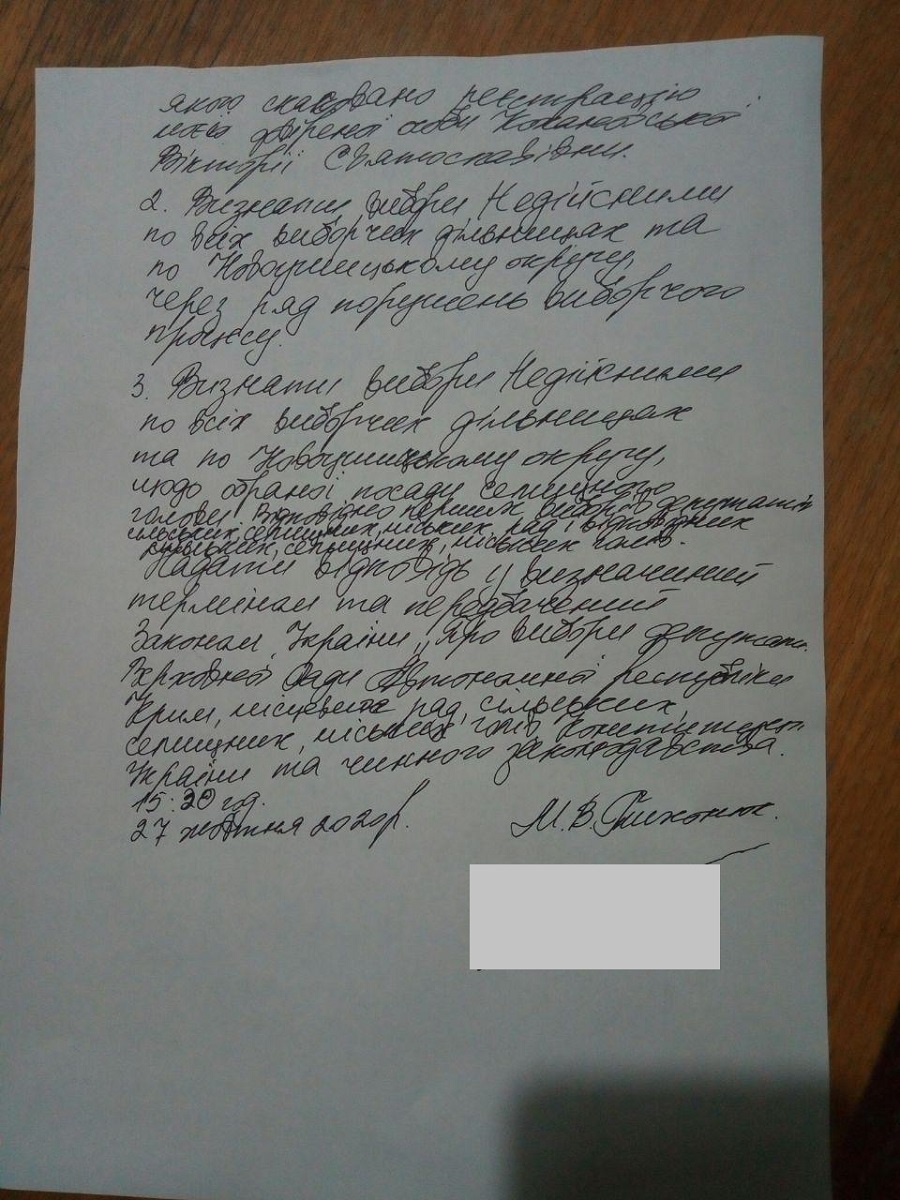 якого скасовано реєстрацію
моєї довіреної особи
Вікторії Святославівни.
2. Визнати вибори Недійсними
по всіх виборчих дільницях та
по Новоушицькому округу,
через ряд порушень виборчого
процесу.
3. Визнати вибори Недійсними
по всіх виборчих дільницях
та по Новоушицькому округу,
щодо обраної посади селищного
голови. Відповідно перших виборів депутатів
сільських, селищних, міських рад і відповідних
сільських, селищних, міських голів.
Надати відповідь у визначений
термінам та передбачений
Законам України „Про вибори депутатів
Верховної Ради Автономної республіки
Крим, місцевих рад, сільських,
селищних, міських голів, Конституцією
України та чинного законодавства.
15:20 год.
27 жовтня 2020р. М.В.